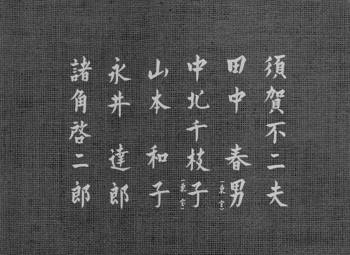 須賀不二夫
田中春男(東宝)
中北千枝子(東宝)
山本和子
永井達郎
諸角啓二郎